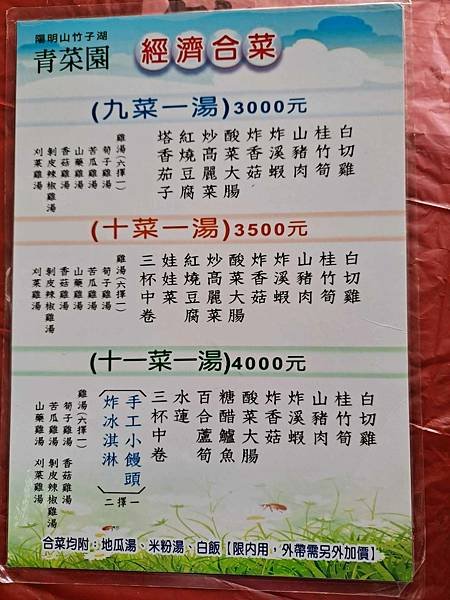 陽明山竹子湖
青菜園
經濟合菜
(九菜一湯)3000元
白切雞
桂竹筍
山豬肉
炸溪蝦
炸香菇
酸菜大腸
炒高麗菜
紅燒豆腐
塔香茄子
雞湯(六擇一)
筍子雞湯
苦瓜雞湯
山藥雞湯
香菇雞湯
剝皮辣椒雞湯
刈菜雞湯
(十菜一湯)3500元
白切雞
桂竹筍
山豬肉
炸溪蝦
炸香菇
酸菜大腸
炒高麗菜
紅燒豆腐
娃娃菜
三杯中卷
雞湯(六擇一)
筍子雞湯
苦瓜雞湯
山藥雞湯
香菇雞湯
剝皮辣椒雞湯
刈菜雞湯
(十一菜一湯)4000元
白切雞
桂竹筍
山豬肉
炸溪蝦
炸香菇
酸菜大腸
糖醋鱸魚
百合蘆筍
水蓮
三杯中卷
手工小饅頭
炸冰淇淋
二擇一
雞湯(六擇一)
筍子雞湯 香菇雞湯
苦瓜雞湯 剝皮辣椒雞湯
山藥雞湯 刈菜雞湯
合菜均附：地瓜湯、米粉湯、白飯【限內用，外帶需另外加價】